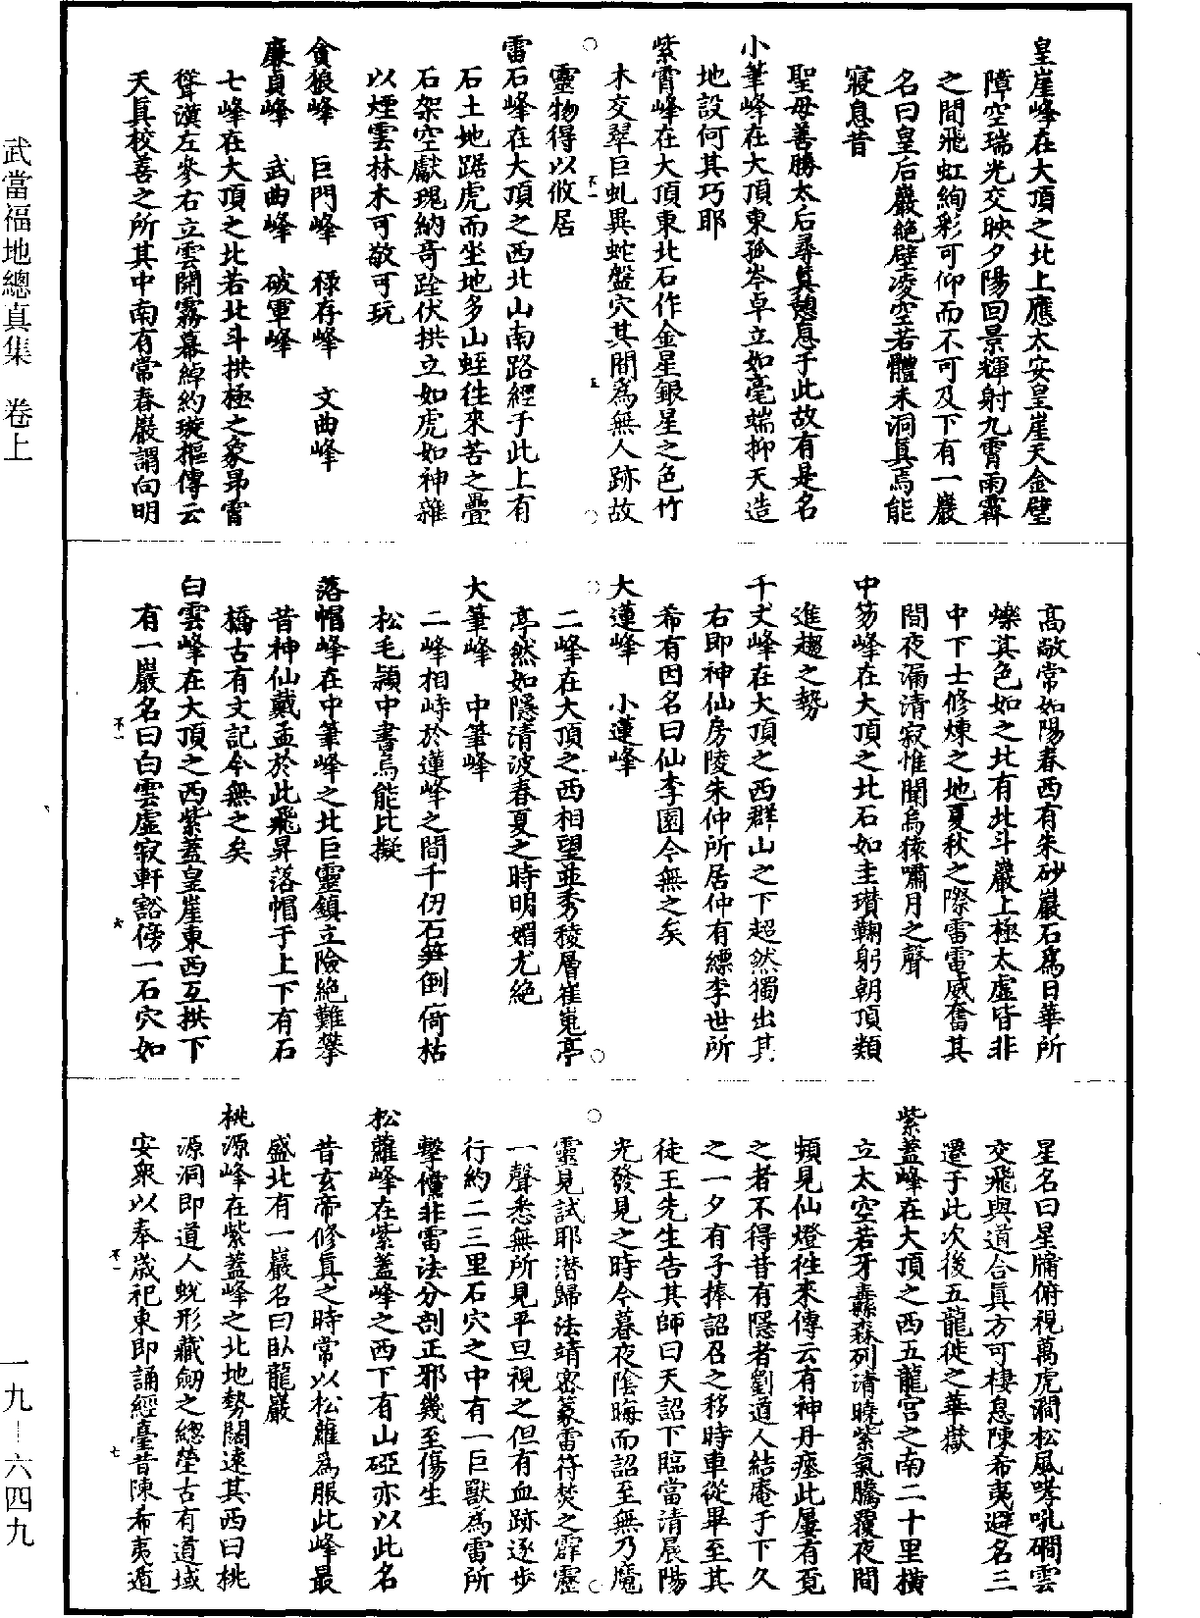 皇崖峰在大頂之北上應太安皇崖天金壁
障空瑞光交映夕陽回景輝射九霄雨霖
之間飛虹絢彩可仰而不可及下有一巖
名曰皇后巖絕壁凌空若體未洞真焉能
寢息昔
聖母善勝太后尋真憩息于此故有是名
小筆峰在大頂東孤岑卓立如毫端抑天造
地設何其巧耶
紫霄峰在大頂東北石作金星銀星之色竹
木交翠巨虬異蛇盤穴其間為無人跡故
不一
五
靈物得以攸居
雷石峰在大頂之西北山南路經于此上有
石土地踞虎而坐地多山蛭往來苦之疊
石架空獻瑰納奇跧伏拱立如虎如神雜
以煙雲林木可敬可玩
貪狼峰　巨門峰　祿存峰　文曲峰
廉貞峰　武曲峰　破軍峰
七峰在大頂之北若北斗拱極之象昂霄
聳漢左參右立雲開霧幕綽約璇樞傳云
天真校善之所其中南有常春巖謂向明
高敞常如陽春西有朱砂巖石為日華所
爍其色如之北有北斗巖上極太虛皆非
中下士修煉之地夏秋之際雷電威奮其
間夜漏清寂惟聞烏猿嘯月之聲
中笏峰在大頂之北石如圭瓚鞠躬朝頂類
進趨之勢
千丈峰在大頂之西群山之下超然獨出其
右即神仙房陵朱仲所居仲有縹李世所
希有因名曰仙李園今無之矣
大蓮峰　小蓮峰
二峰在大頂之西相望並秀稜層崔嵬亭
亭然如隱清波春夏之時明媚尤絕
大筆峰　中筆峰
二峰相峙於蓮峰之間千仞石笋倒倚枯
松毛潁中書烏能比擬
落帽峰在中筆峰之北巨靈鎮立險絕難攀
昔神仙戴孟於此飛昇落帽于上下有石
橋古有文記今無之矣
白雲峰在大頂之西紫蓋皇崖東西互拱下
有一巖名曰白雲虛寂軒豁傍一石穴如
不一
六
星名曰星牖俯視萬虎澗松風哮吼磵雲
交飛與道合真方可棲息陳希夷避名三
遷于此次後五龍徙之華嶽
紫蓋峰在大頂之西五龍宮之南二十里橫
立太空若牙纛森列清曉紫氣騰覆夜間
頻見仙燈往來傳云有神丹瘞此屢有覓
之者不得昔有隱者劉道人結庵于下久
之一夕有子捧詔召之移時車從畢至其
徒王先生告其師曰天詔下臨當清晨陽
光發見之時今暮夜陰晦而詔至無乃魔
靈見試耶潛歸法靖密篆雷符焚之霹靂
一聲悉無所見平旦視之但有血跡逐步
行約二三里石穴之中有一巨獸為雷所
擊儻非雷法分剖正邪幾至傷生
松蘿峰在紫蓋峰之西下有山硪亦以此名
昔玄帝修真之時常以松蘿為服此峰最
盛北有一巖名曰臥龍巖
桃源峰在紫蓋峰之北地勢闊遠其西曰桃
源洞即道人蛻形藏劒之總塋古有道域
安衆以奉歲祀東即誦經臺昔陳希夷遁
不一
七
武當福地總真集　卷上
一九—六四九